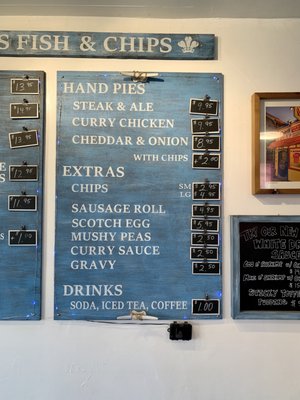 S FISH & CHIPS
13.95
14.95
13.95
12.95
11.95
1.00
HAND PIES
STEAK & ALE 9.95
CURRY CHICKEN 9.95
CHEDDAR & ONION 8.95
WITH CHIPS 2.00
EXTRAS
CHIPS SM 2.95
LG 4.95
SAUSAGE ROLL 4.95
SCOTCH EGG 5.95
MUSHY PEAS 2.50
CURRY SAUCE 2.50
GRAVY 2.50
DRINKS
SODA, ICED TEA, COFFEE 1.00
TRY OUR NEW
WHITE
SAUCE
STICKY